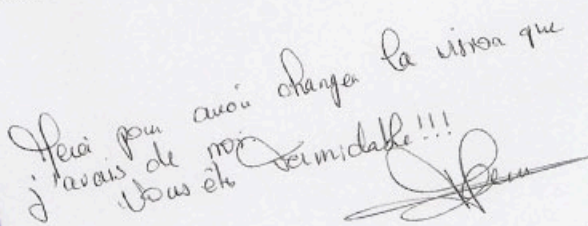 Merci pour avoir changer la vision que
j'avais de moi
Vous êtes formidable!!!